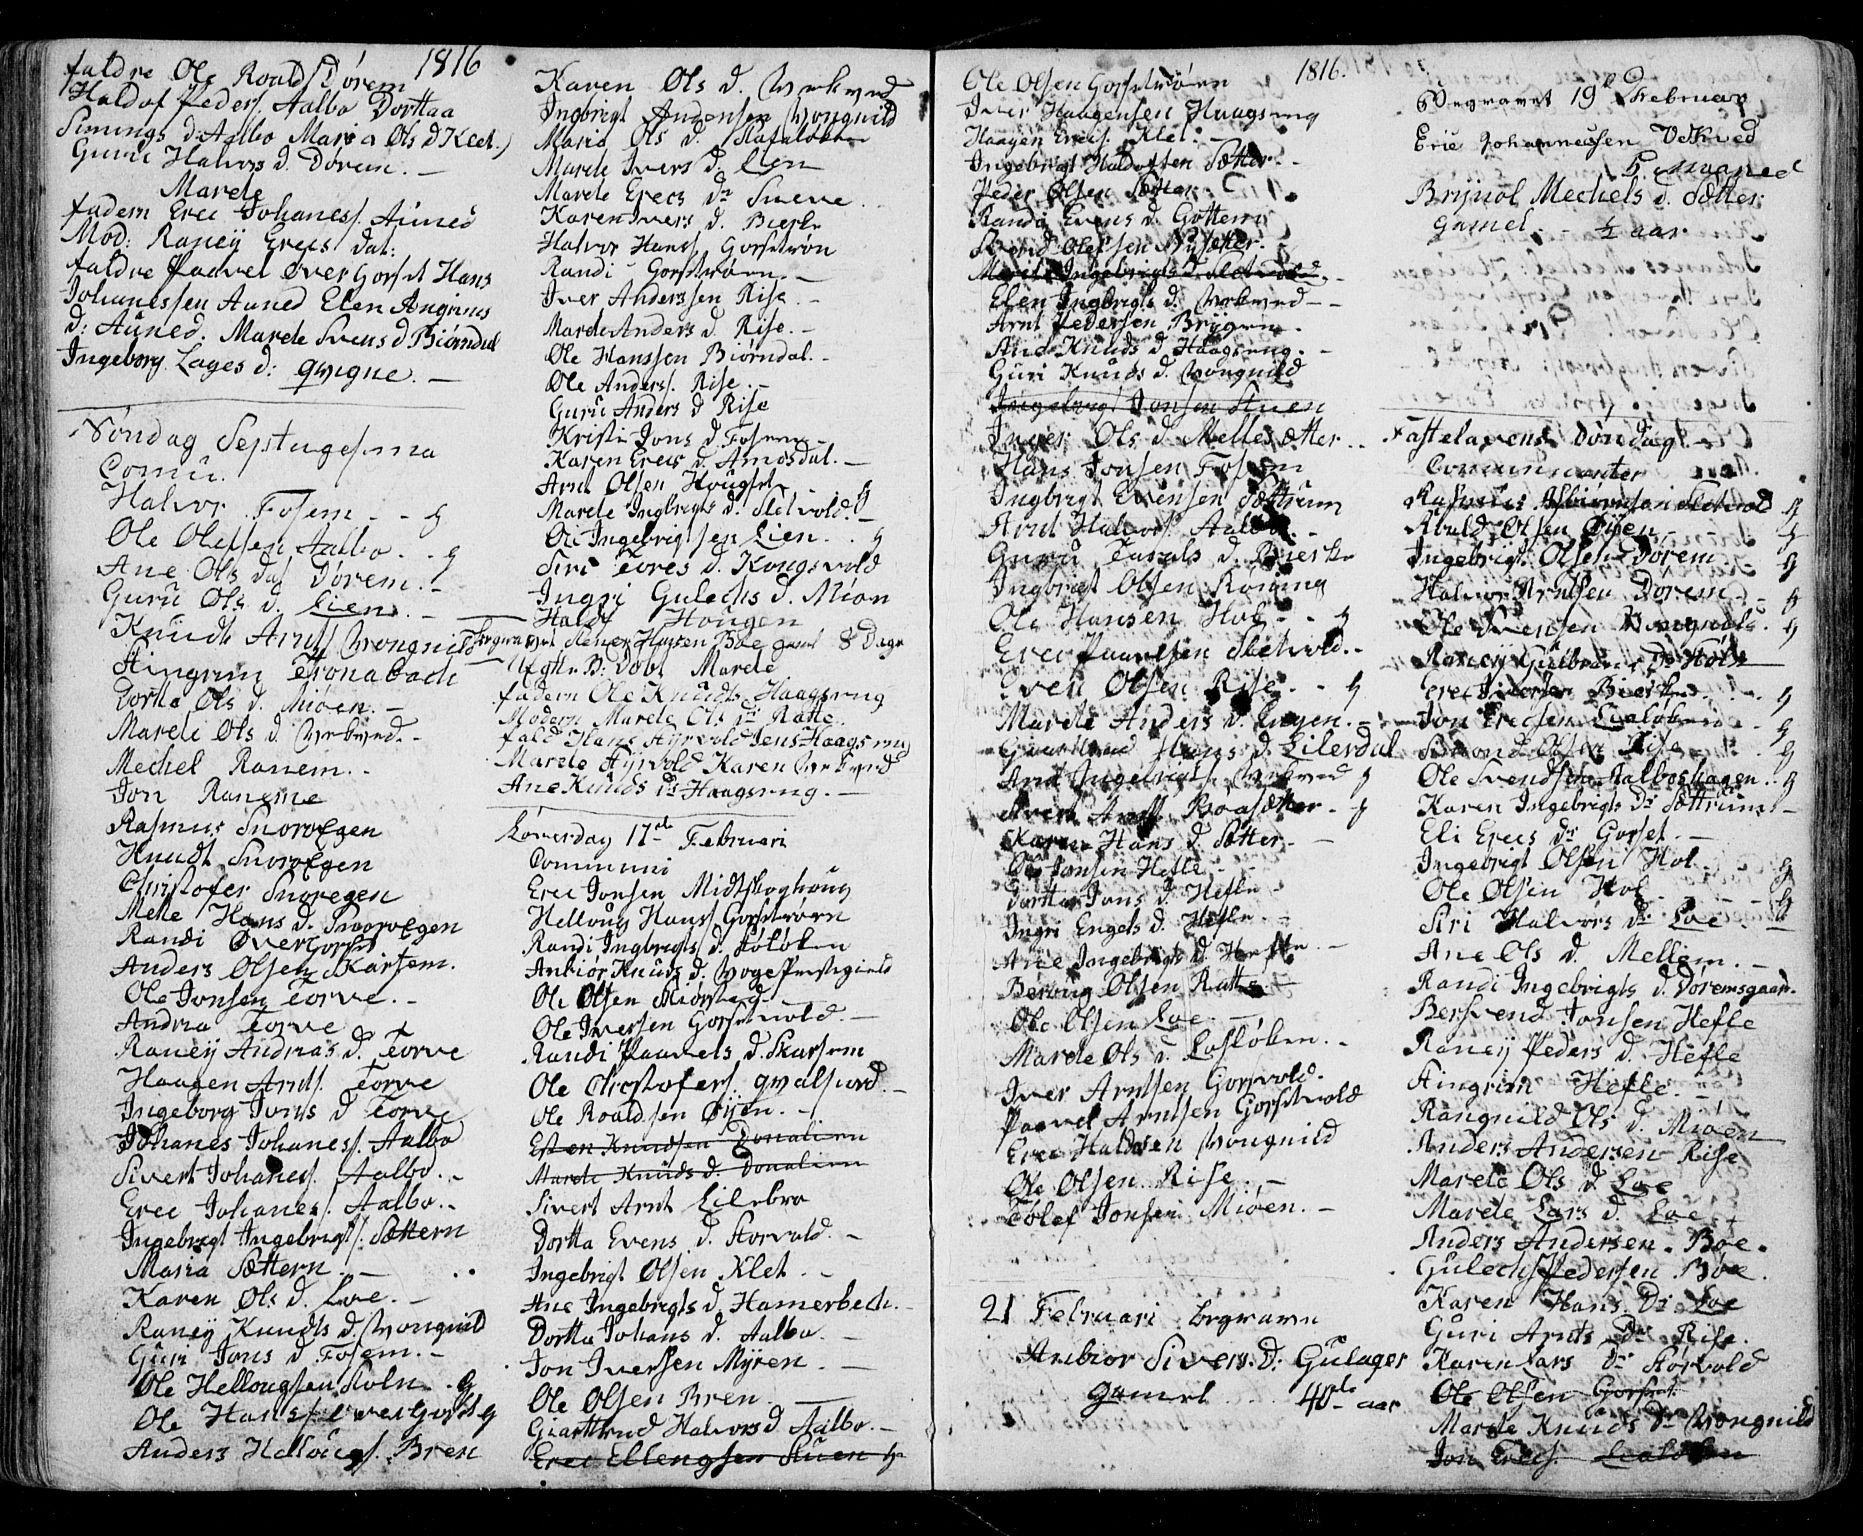 1816
faldre Ole Roalds Dørem
Haldof Peders. Aalbo Dorttaa
d. Aalbo Maria Ols d Klet.
Guru Halvors d. Dørem. —
Marete
fadern Erec Johaness. Auned
Mod: Raney Erecs dat:
faldre Paavel Øver Gorset Hans
Johanessen Auned Elen Angrims
d: Auned. Marete Svens d Biørndal
Ingeborg Lages d: qvigne. —
Søndag Septugesima
Comu.
Halvor Fosem - - g
Ole Olefsen Aalbo - - g
Ane Ols dat Dørem. -
Guru Ols d. Lien. —
Knudt Arnts. Wongnild
Hingrim Tronabach
Dortte Ols d. Miøen. —
Marete Ols d. Wekved. -
Mechel Ranem. -
Jon Raneme
Rasmus Snoroegen
Knudt Snoroegen
Christofer Snoregen
Mette Hans d. Snoroegen
Randi Øvergorset
Anders Olsen Skarsem.
Ole Jonsen Torve. -
Andrea Torve
Raney Andreas d. Torve
Haagen Arnts. Torve
Ingeborg Jons d Torve
Johanes Johaness. Aalbo
Sivert Johaness. Aalbo. -
Erec Johaness. Aalbo. -
Ingebregt Ingebrigts. Sættern
Maria Sættern —
Karen Ols d. Loe. —
Raney Knudts d. Wongnild
Guri Jons d Fosem. -
Ole Hellougsen Holn - g
Ole Hanss. Øvergorset g
Anders Hellougs. Bren
Karen Ols d. Wekved
Ingbrigt Andersen Wongnild
Maria Ols d.
Marete Ivers d. Lien
Marete Erecs dr Sneve
Karen Ivers d. Bierke
Halvor Hanss Gorsetrøn
Randi Gorsetrøen. —
Iver Anderssen Rise. —
Marete Anders d. Rise. —
Ole Hanssen Biørndal. —
Ole Anderss. Rise. —
Guru Anders d Rise
Kristi Jons d. Fosem —
Karen Erecs d. Amosdal. —
Arnt Olsen Hougset - g
Marete Ingbrigts d. Sletvold. —
Ole Ingebrigtsen Lien. - g
Siri Tores d. Kongsvold
Ingri Gulechs d. Mion
Haldt Hougen
begravet Stener Hansen Boe gamt 8 Dage
døbt Marete
fadern Ole Knudts. Haagsrng
Modern Marete Ols dr Ratte.
fald Hans Hyrvold Jens Haagsrng
Marete Hyrvold Karen Wekved
Ane Knuds dr Haagsrng. —
Løverdag 17de Februari
Communi
Erec Jonsen Midtskoghoug
Helloug Hanss Gorsetrøen
Randi Ingbregts d.
Anbiør Knuds d. Woge Prestegield
Ole Olsen
Ole Iversen Gorsetvold. —
Randi Paavels d. Skarsem
Ole Chrestofers. qvalsund. —
Ole Roaldsen Øyen. -
Esten Knudsen Donalien
Marete Knuds d. Donalien
Sivert Arnt Lilebro
Dortta Evens d. Storvold. —
Ingebrigt Olsen Klet. -
Ane Ingebrigts d. Hamerbech. -
Dortta Johans d. Aalbo. —
Jon Iverssen Myren. —
Ole Olsen Bren —
Giarttrud Halvors d Aalbo. —
Erec Ellengsen Stuen g
1816.
Ole Olsen Gorsetrøen
Iver Haagensen Haagsrng
Haagen Erecs. Klet. —
Ingebrigt Haldofsen Sætter. -
Peder Olsen Sætter
Randi Evens d. Gottem
Olefsen Nysetter.
Marete Ingebrigts d. Sletvold. —
Elen Ingbrigts d. Wekved - -
Arnt Pedersen Bryggen —
Ane Knuds d. Haagsrng. -
Guri Knuds d. Wongnild
Ingebrigt Jonsen Stuen
Inger Ols d. Mellesætter. .
Hans Jonsen Fosem
Ingbrigt Evensen Sættrum
Arnt Halvors. Aalbo. -
Guru d. Bierke
Ingbrigt Olsen Roning
Ole Hansen Hol - . g
Erec Paavelsen Sletvold. -
Even Olsen Rise. - g
Marete Anders d. Engen. -
Giarttrud Hans d. Lilerdal
Arnt Ingebrigts. Wekved g
Arnts. Boasætter - g
Karen Hans d. Sætter. —
Ole Jonsen Hefle
Dorttea Jons d. Hefle
Ingri Engels d. Hefle. —
Ane Ingebrigts d. Hefle. —
Berong Olsen Ratte. —
Ole Olsen Loe —
Marete Ols d. Losløben. -
Iver Arntsen Gorsvold. -
Paavel Arntsen Gorsetvold
Erec Haldosen Wongnild
Ole Olsen Rise. —
Tolef Jonsen Miøen. —
21 Februari begraven
Anbior Sivers d: Gulager
gamel . . . 40de aar
Begravet 19de Februar
Eric Johannessen Vekved
5 Maaned
Brynol Mechels d. Sætter
gamel. - ½ aar
Fastelavens Søndag
Communicanter
Rasmus Sletvold g
Roald Olsen Øyen g
Ingebrigt Olsen Dørem g
Halvor Arntsen Dørem - g
Ole Svensen Wongnild. g
Raney Gulbrans dr Holn
Erec Iversen Bierke - g
Jon Erecsen - g
Simon Olsen Rise - g
Ole Svendsen Aalboshagen. - g
Karen Ingebrigts dr Sættrum —
Eli Erecs dr Gorset. —
Ingebrigt Olsen Hol - g
Ole Olsen Hol - - g
Siri Halvors dr Loe. —
Ane Ols d. Mellem. -
Randi Ingebrigts d. Døremsgaar. -
Bersvend Jonsen Hefle
Raney Peders d. Hefle
Hingrim Hefle. -
Rangnild Ols d. Miøen
Anders Andersen Rise
Marete Ols d Loe
Marete Lars d. Loe
Anders Andersen. Boe.
Gulech Pedersen Boe.
Karen Hans Dr Loe
Guri Arnts Dr Rise.
Karen Lars Dr Storvold
Ole Olsen Gorset
Marete Knuds Dr Wongnild
Jon Erecs.